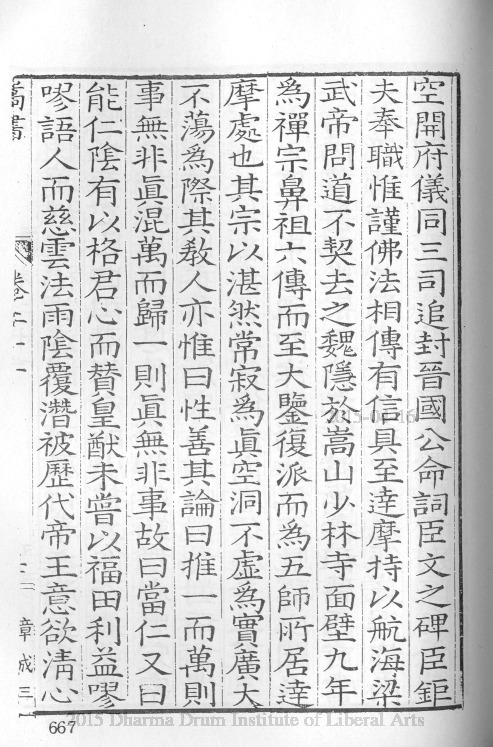 空開府儀同三司追封晉國公命詞臣文之碑臣鉅
夫奉職惟謹佛法相傳有信具至達摩持以航海梁
武帝問道不契去之魏隱於嵩山少林寺面壁九年
為禪宗鼻祖六傳而至大鑒復派而為五師所居達
摩處也其宗以湛然常寂為真空洞不虛為實廣大
不蕩為際其教人亦惟曰性善其論曰推一而萬則
事無非眞混萬而歸一則眞無非事故曰當仁又曰
能仁陰有以格君心而贊皇猷未嘗以福田利益嘐
嘐語人而慈雲法雨陰覆潛被歷代帝王意欲淸心
卷二十一
章成三
667
2015 Dharma Drum Institute of Liberal Arts